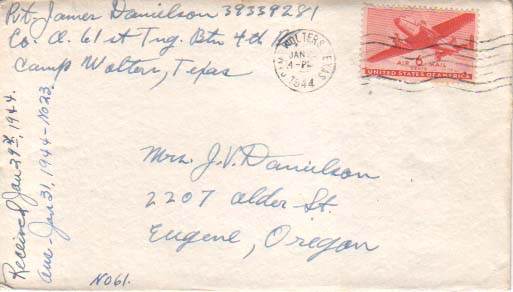 Pvt. James Danielson 39339281
Co. A. 61st Tng. Btn 4th
Camp Wolters, Texas
WOLTERS, TEXAS
JAN
4-PM
1944
6
AIR MAIL
UNITED STATES OF AMERICA
Mrs. J.V. Danielson
2207 Alder St.
Eugene, Oregon
Received Jan 29th, 1944.
ans- Jan 31, 1944-No 23.
No61.